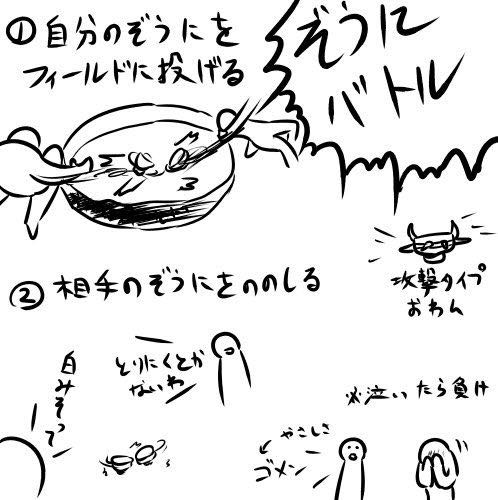 ぞうに
バトル
①自分のぞうにを
フィールドに投げる
攻撃タイプ
おわん
②相手のぞうにをののしる
白みそって
とりにくとか
ないわ
※泣いたら負け
やさしさ
ゴメン